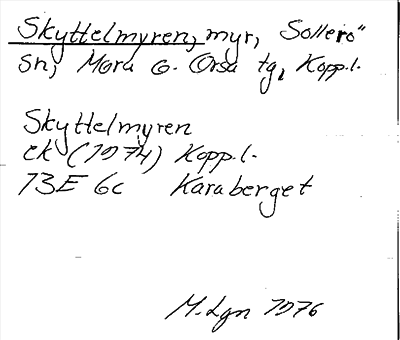 Skyttelmyren, myr, Sollerö"
sn, Mora o. Orsa tg, Kopp.l.
Skyttelmyren
ek (1974) Kopp.l.
13E 6c Karaberget
M. Lgn 1976